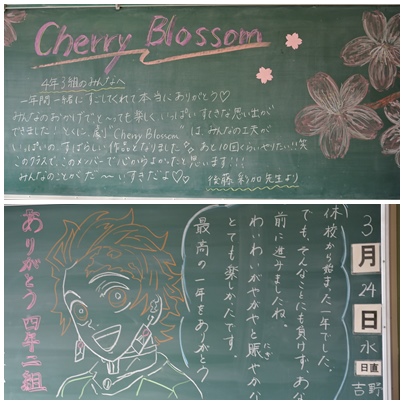 Cherry Blossom
4年3組のみんなへ
一年間一緒にすごしてくれて本当にありがとう♡
みんなのおかげでと〜っても楽しく、いっぱいすてきな思い出が
できました！とくに、劇"Cherry Blossom"は、みんなの工夫が
いっぱいのすばらしい作品となりました。あと10回くらいやりたい!!笑
このクラスで、このメンバーで心からよかったと思います!!!
みんなのことがだ〜いすきだよ♡♡
後藤 彩加 先生より
3月24日水
日直
吉野
休校から始まった一年でした。
でも、そんなことにも負けず、
前に進みましたね。
わいわいがやがやと賑やかな
にぎ
とても楽しかったです。
最高の一年をありがとう
ありがとう四年二組